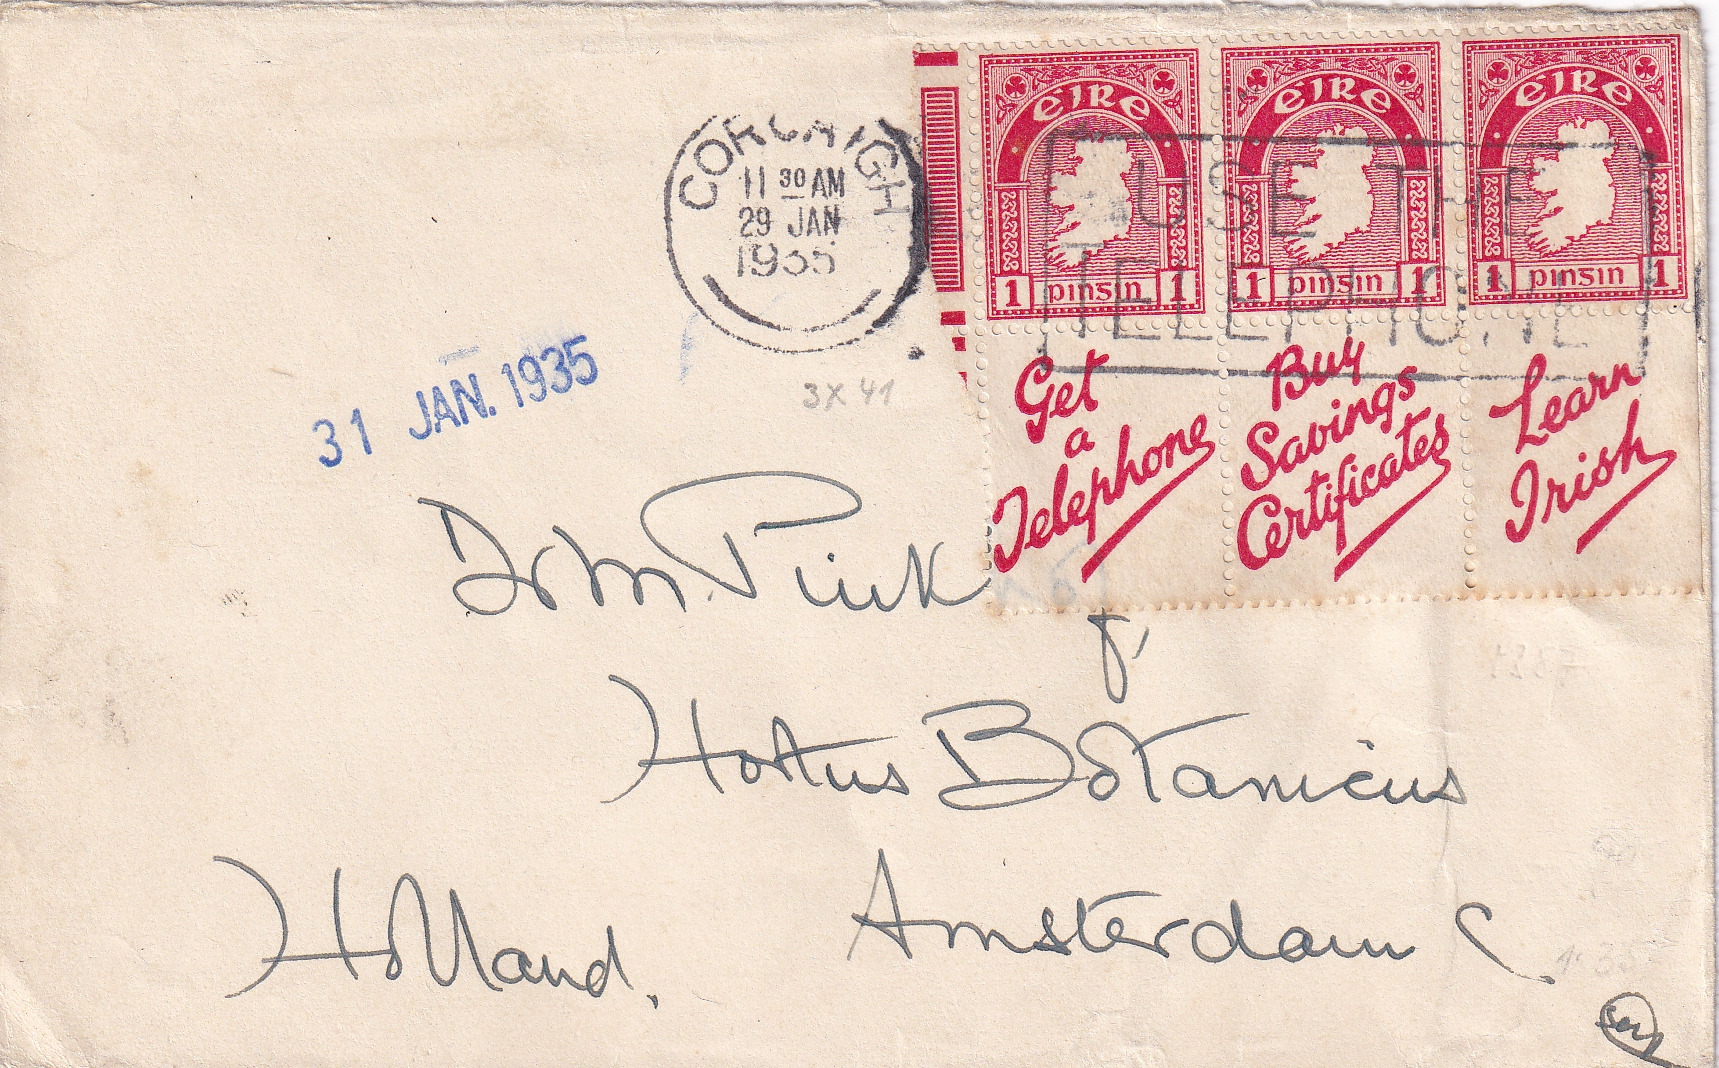 CORCAIGH
11 30 AM
29 JAN
1935
EIRE EIRE EIRE
1 pinsin 1 1 pinsin 1 1 pinsin 1
USE THE
TELEPHONE
Get
a
Telephone
Buy
Savings
Certificates
Learn
Irish
3 X 41
31 JAN. 1935
Dr M. Pink
Hortus Botanicus
Amsterdam C.
Holland.